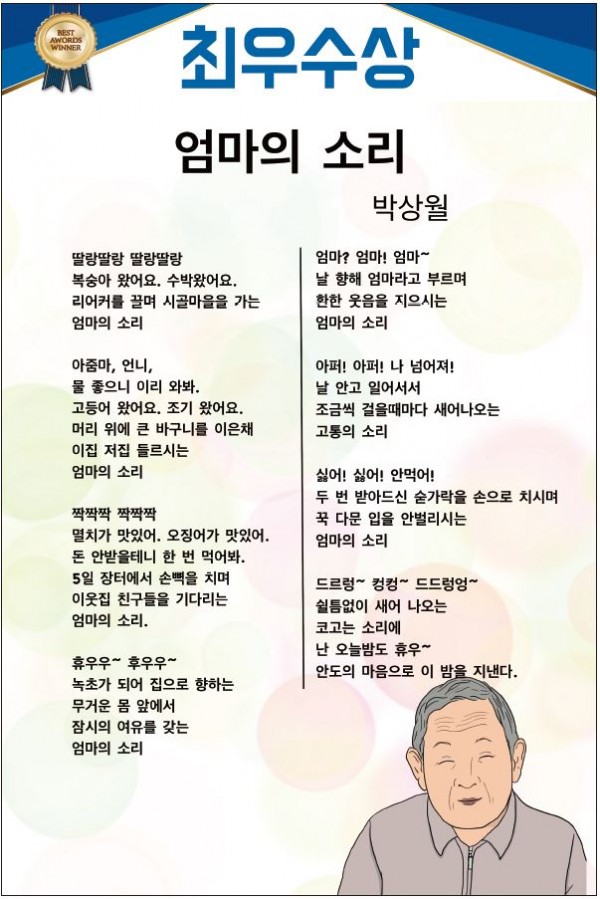 BEST
AWORDS
WINNER
최우수상
엄마의 소리
박상월
딸랑딸랑 딸랑딸랑
복숭아 왔어요. 수박왔어요.
리어커를 끌며 시골마을을 가는
엄마의 소리
아줌마, 언니,
물 좋으니 이리 와봐.
고등어 왔어요. 조기 왔어요.
머리 위에 큰 바구니를 이은채
이집 저집 들르시는
엄마의 소리
짝짝짝 짝짝짝
멸치가 맛있어. 오징어가 맛있어.
돈 안받을테니 한 번 먹어봐.
5일 장터에서 손뼉을 치며
이웃집 친구들을 기다리는
엄마의 소리.
휴우우~ 후우우~
녹초가 되어 집으로 향하는
무거운 몸 앞에서
잠시의 여유를 갖는
엄마의 소리
엄마? 엄마! 엄마~
날 향해 엄마라고 부르며
한한 웃음을 지으시는
엄마의 소리
아퍼! 아퍼! 나 넘어져!
날 안고 일어서서
조금씩 걸을때마다 새어나오는
고통의 소리
싫어! 싫어! 안먹어!
두 번 받아드신 숟가락을 손으로 치시며
꾹 다문 입을 안벌리시는
엄마의 소리
드르렁~ 컹컹~ 드드렁엉~
쉴틈없이 새어 나오는
코고는 소리에
난 오늘밤도 휴우~
안도의 마음으로 이 밤을 지낸다.